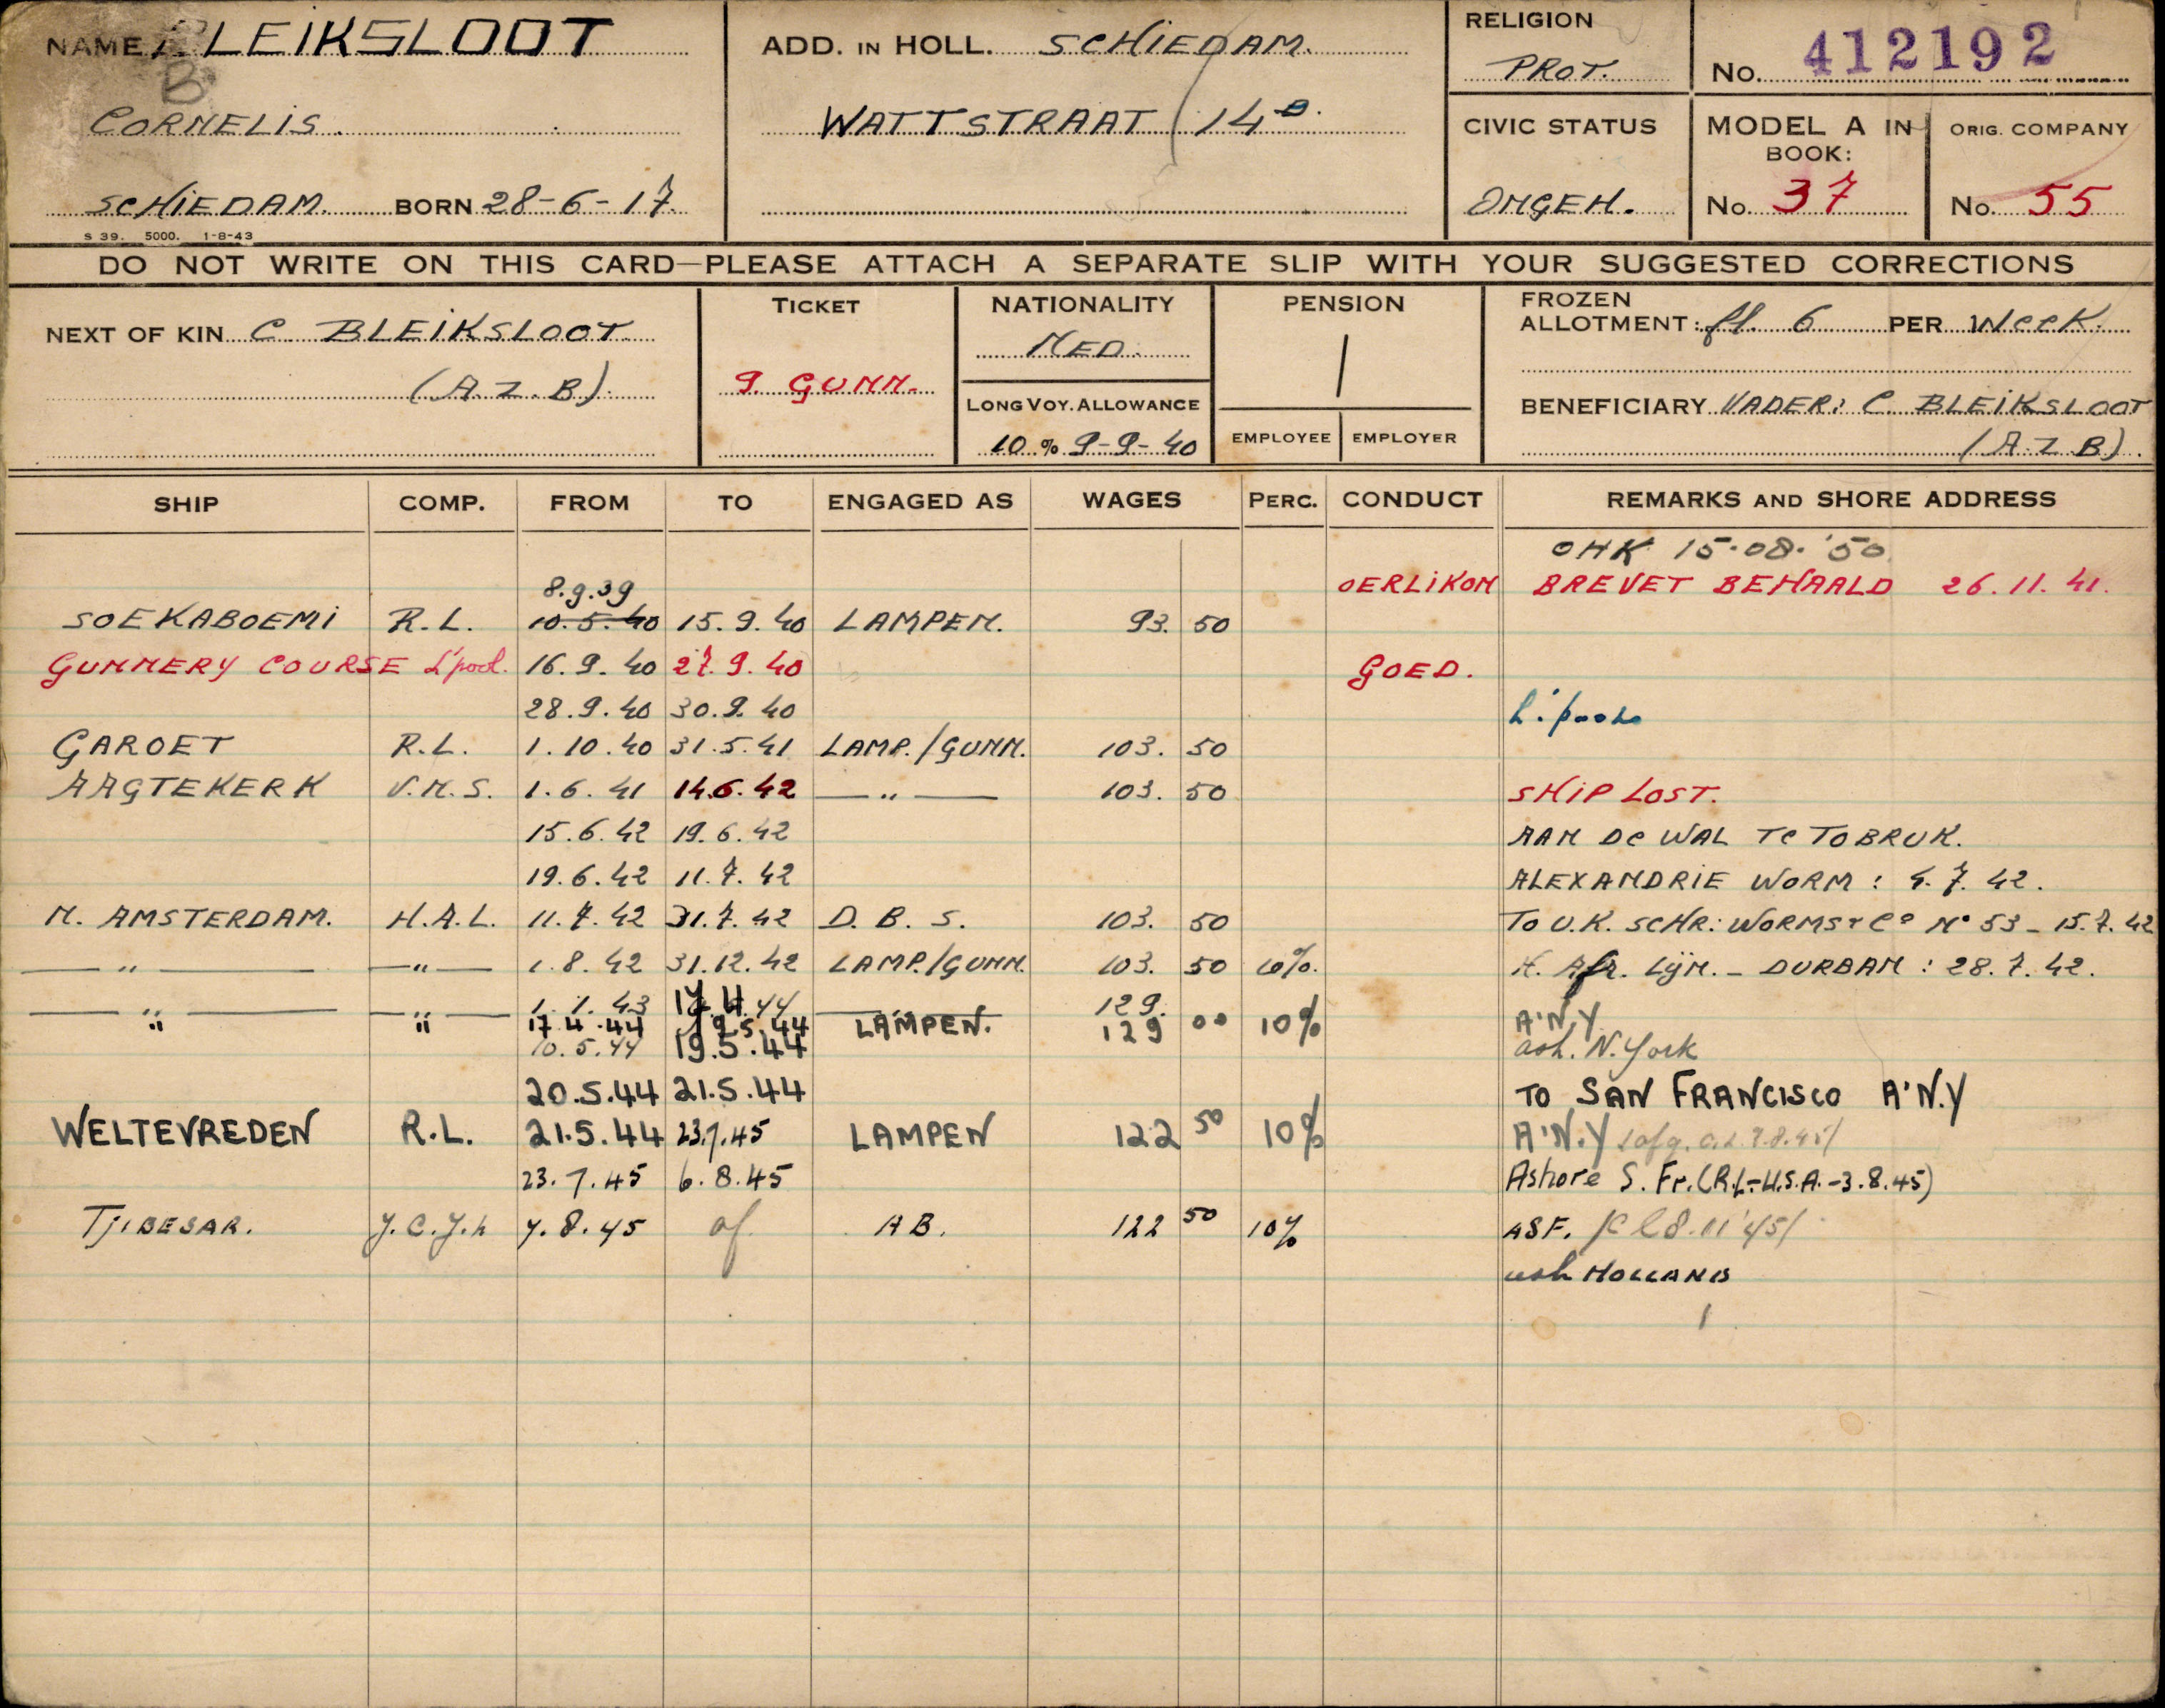 NAME BLEIKSLOOT
B
CORNELIS.
SCHIEDAM. BORN 28-6-17.
S 39. 5000. 1-8-43
ADD. IN HOLL. SCHIEDAM.
WATTSTRAAT 14 B.
RELIGION
PROT.
No. 412192
CIVIC STATUS
ONGEH.
MODEL A IN BOOK:
No. 37
ORIG. COMPANY
No. 55
DO NOT WRITE ON THIS CARD—PLEASE ATTACH A SEPARATE SLIP WITH YOUR SUGGESTED CORRECTIONS
NEXT OF KIN C. BLEIKSLOOT
(A.Z.B).
TICKET
9. GUNN.
NATIONALITY
NED.
LONG VOY. ALLOWANCE
10 % 9-9-40
PENSION
EMPLOYEE EMPLOYER
FROZEN
ALLOTMENT: fl. 6 PER WEEK.
BENEFICIARY VADER: C. BLEIKSLOOT
(A.Z.B).
SHIP COMP. FROM TO ENGAGED AS WAGES PERC. CONDUCT REMARKS AND SHORE ADDRESS
OHK 15-08-'50
8.9.39 OERLIKON BREVET BEHAALD 26.11.41.
SOEKABOEMI R.L. 10.5.40 15.9.40 LAMPEN. 93. 50
GUNNERY COURSE L'pool. 16.9.40 27.9.40 GOED.
28.9.40 30.9.40 L.pool
GAROET R.L. 1.10.40 31.5.41 LAMP./GUNN. 103. 50
AAGTEKERK V.N.S. 1.6.41 14.6.42 —„— 103. 50 SHIP LOST.
15.6.42 19.6.42 AAN DE WAL TE TOBRUK.
19.6.42 11.7.42 ALEXANDRIE WORM: 4.7.42.
N. AMSTERDAM. H.A.L. 11.7.42 31.7.42 D.B.S. 103. 50 TO U.K. SCHR: WORMS & Co No 53 - 15.7.42
—„— —„— 1.8.42 31.12.42 LAMP./GUNN. 103. 50 10%. H. Afr. Lijn. - DURBAN: 28.7.42.
—„— —„— 1.1.43 17.4.44 —„— 129.
" " 17.4.44 LAMPEN. 129 00 10% A'N.Y
10.5.44 19.5.44 ash. N.York
20.5.44 21.5.44 TO SAN FRANCISCO A'N.Y
WELTEVREDEN R.L. 21.5.44 23.7.45 LAMPEN 122 50 10% A'N.Y
23.7.45 6.8.45 Ashore S. Fr. (R.L.-U.S.A.-3.8.45)
TJIBESAR. J.C.J.L 7.8.45 of AB. 122 50 10% ASF.
ash HOLLAND